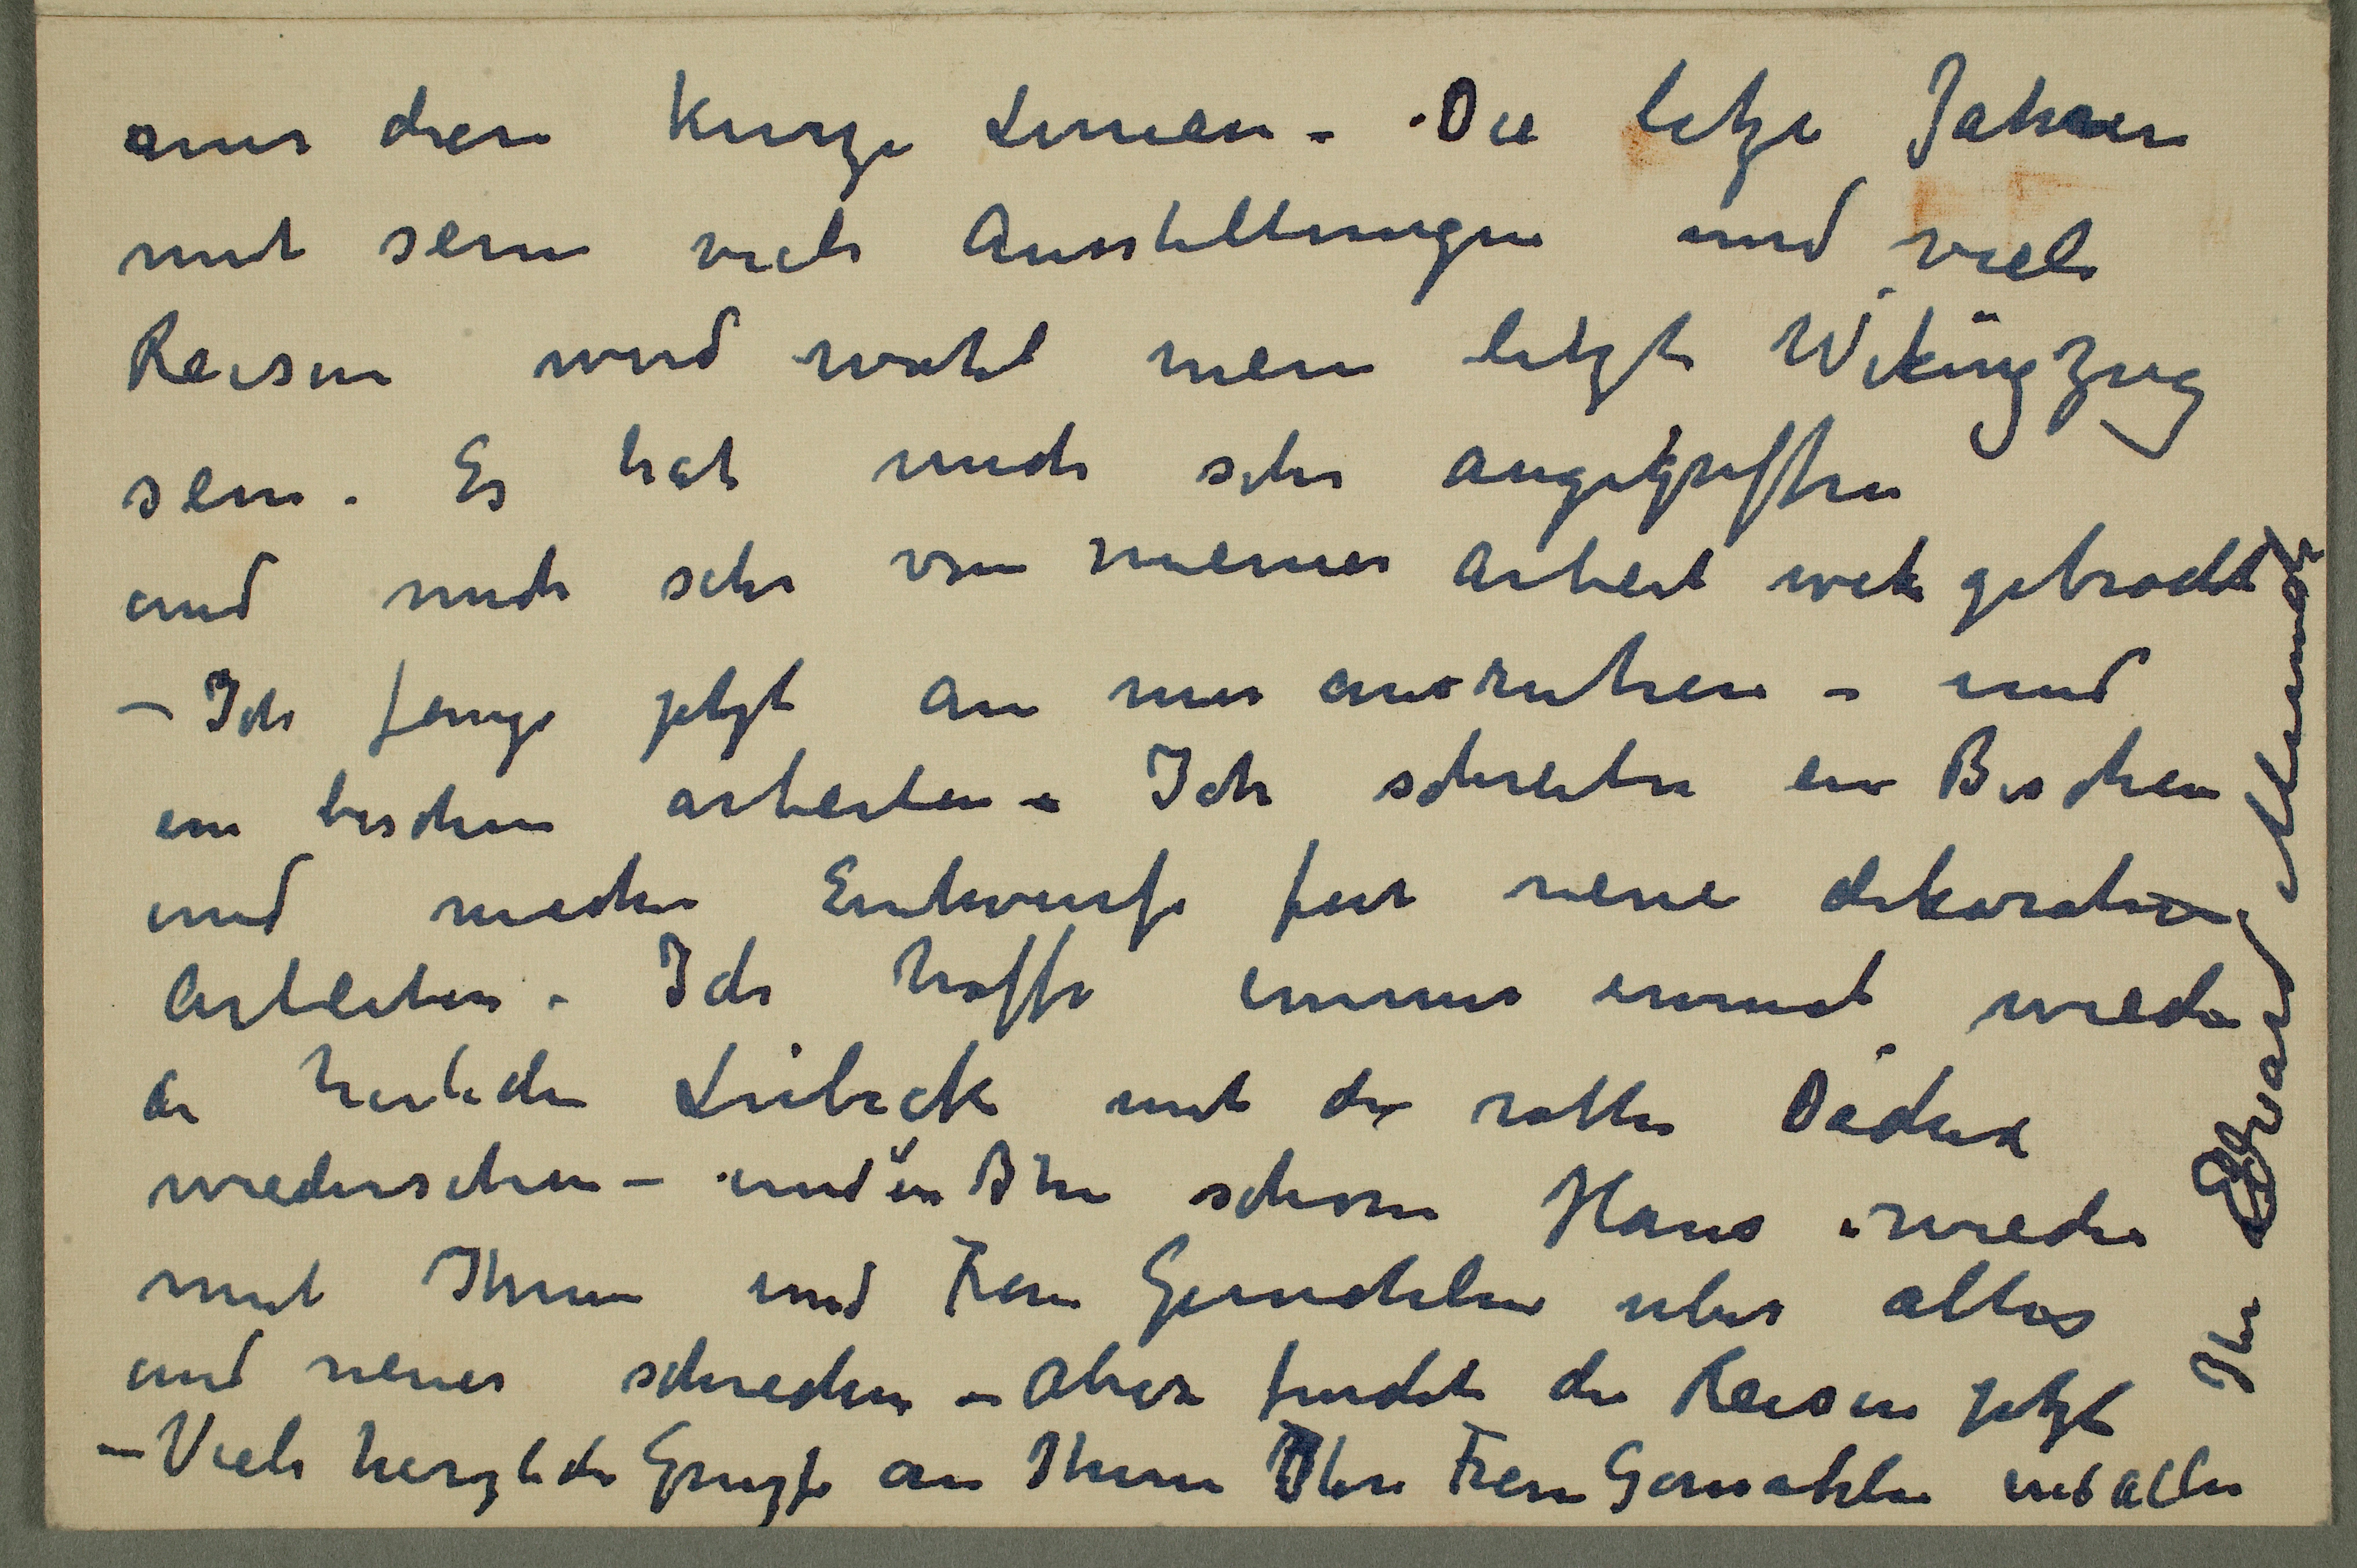 nur diese kurze Linien – Die letze Jahren
mit seine viele Ausstellungen und viele
Reisen wird wohl mein letzte Wikingzug
sein. Es hat mich sehr angegriffen
und mich sehr von meiner Arbeit wek gebracht
– Ich fange jetzt an mir ausruhen – und
ein bischen arbeiten – Ich schreibe ein Bischen
und mache Entwurfe fur neue dekorative
Arbeiten. Ich hoffe immer einmal wieder
das herliche Lübeck mit die rothe Dächer
wiedersehen – und in Ihre schöne Haus wieder
mit Ihnen und Frau Gemahlin über altes
und neues schrechen – aber findet die Reisen jetzt
– Viele herzliche Gruzse an Ihnen Ihre Frau Gemahlin und alle
Ihr Edvard Munch